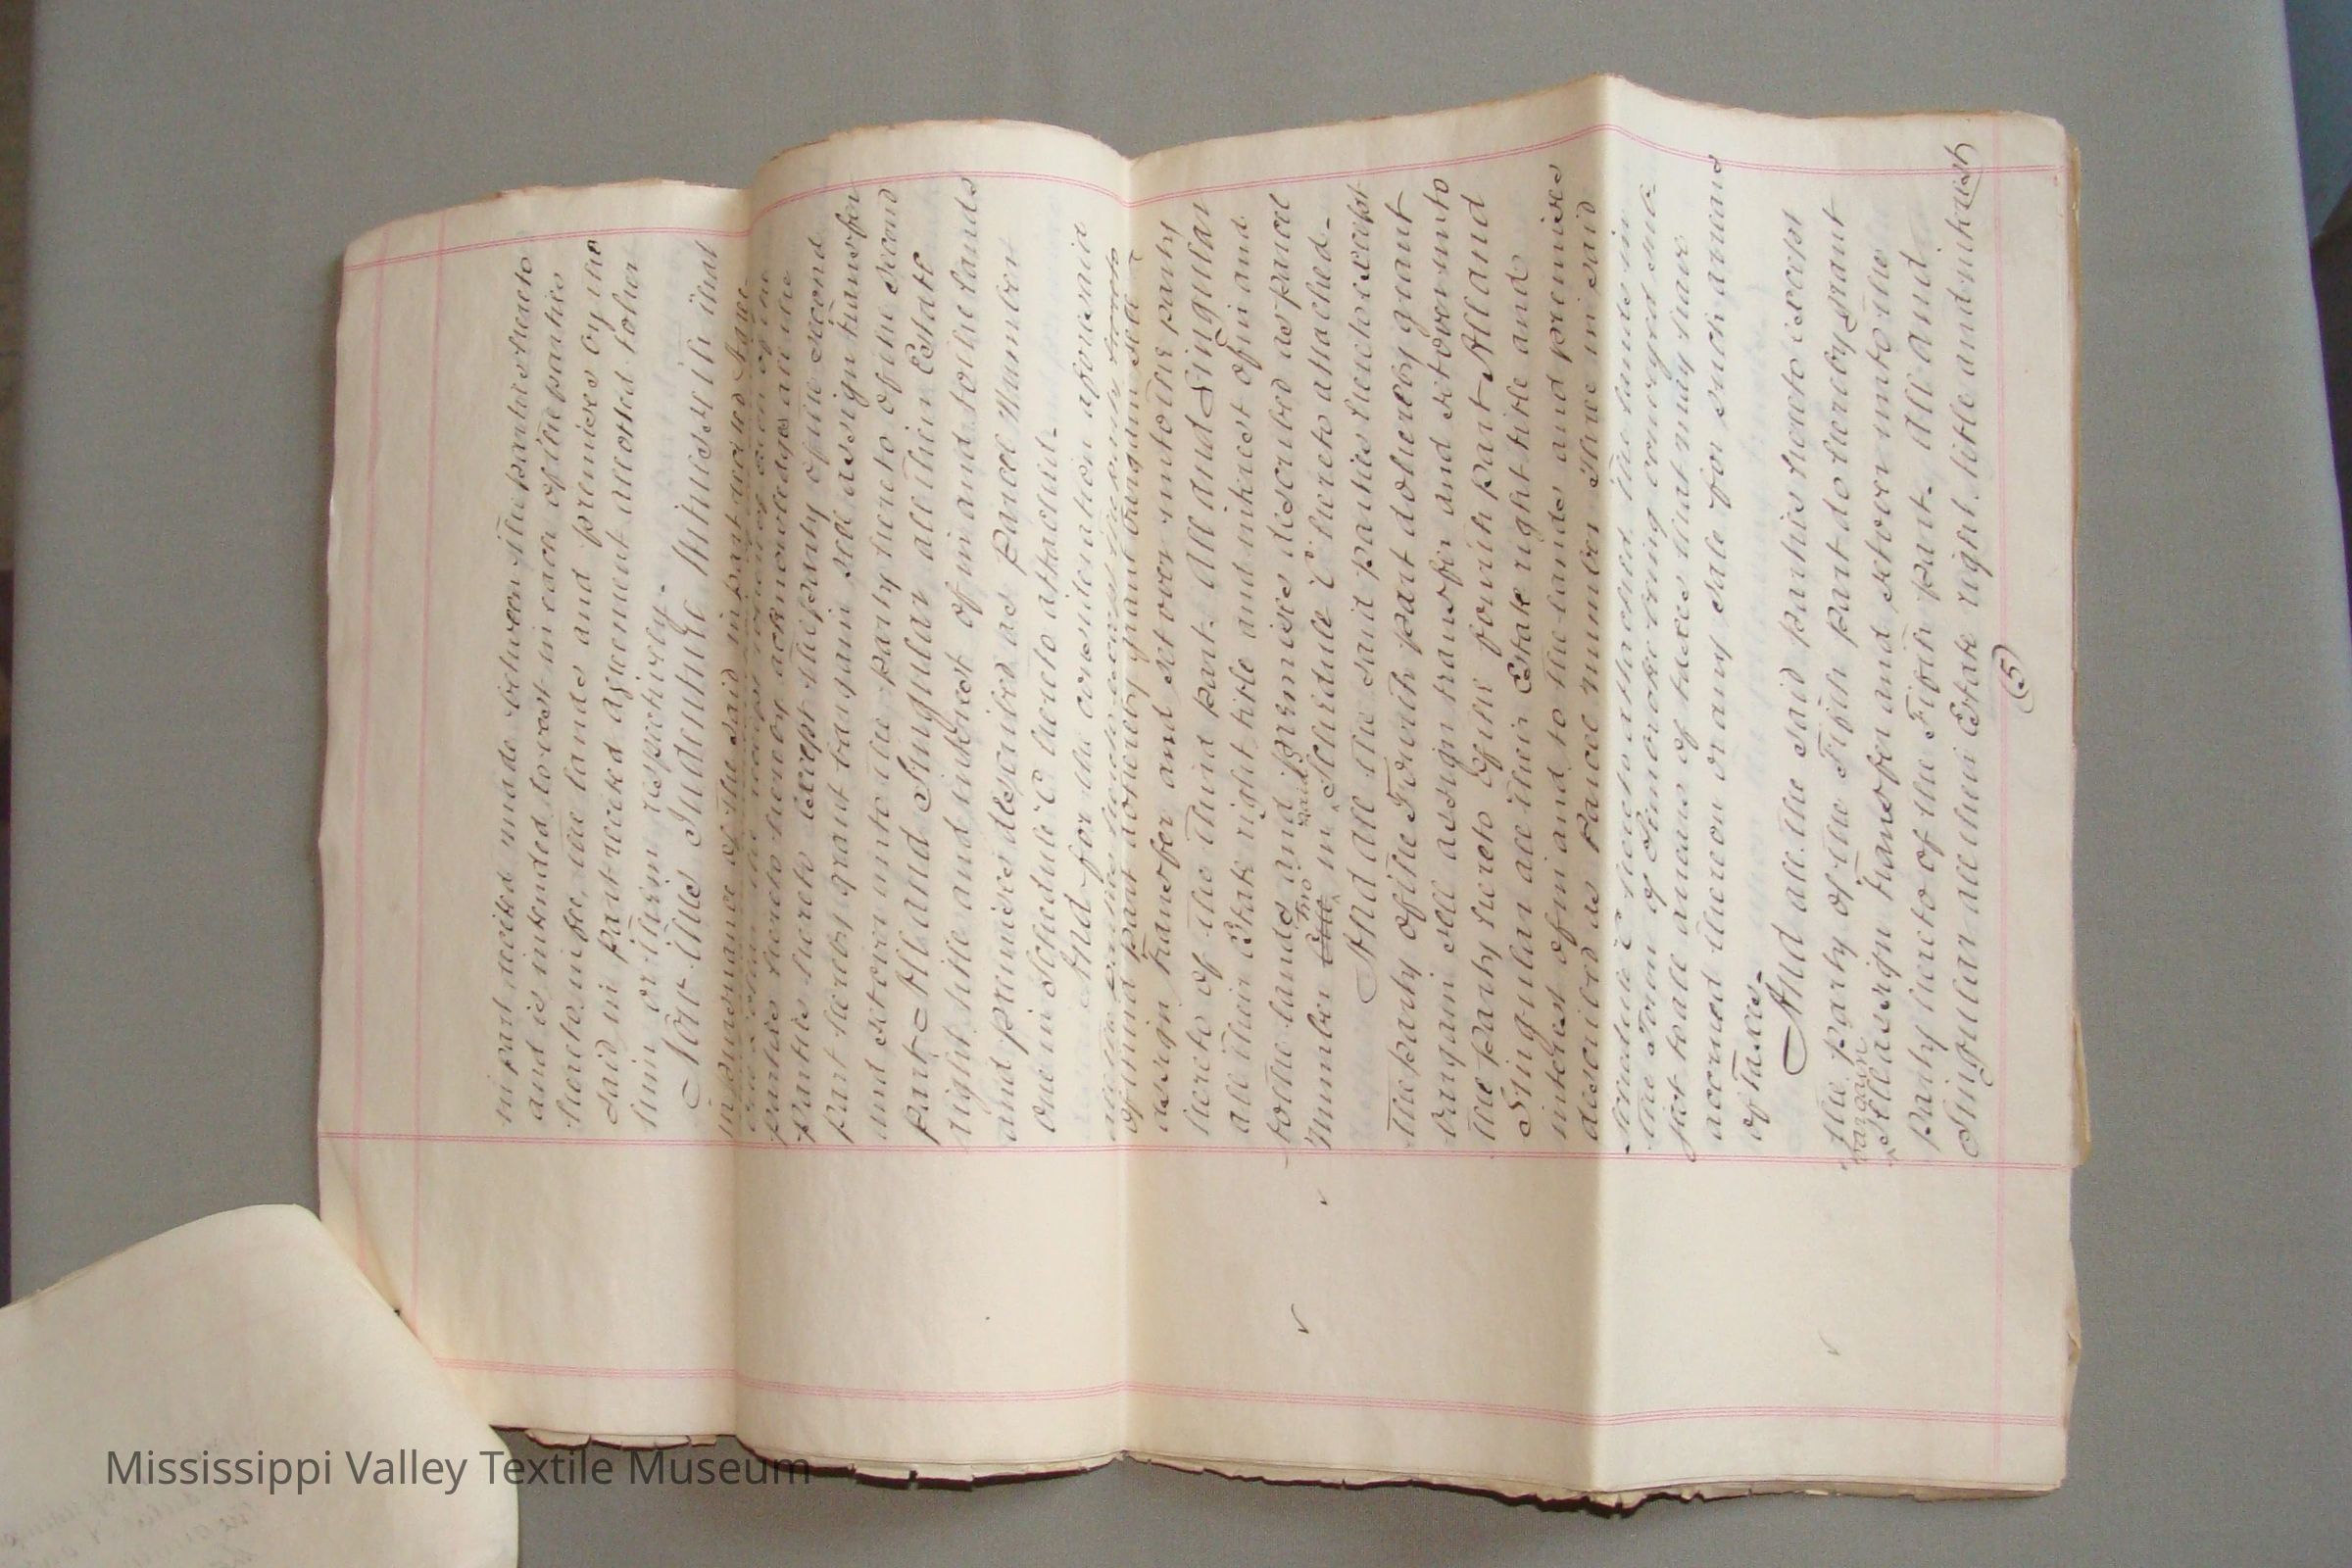 in part recited made between the parties hereto
and is intended to vest in each of the parties
hereto in fee, the lands and premises by the
said in part recited agreement allotted to her
him or them respectively.
Now this Indenture Witnesseth that
in pursuance of the said in part recited Agree-
parties hereto hereby acknowledges all the
parties hereto except the party of the second
part hereby grant bargain sell assign transfer
and set over unto the party hereto of the second
part All and Singular all their Estate
right title and interest of in and to the lands
and premises described as Parcel Number
One in Schedule C hereto attached.
And for the consideration aforesaid
all the parties hereto except the party hereto
of third part do hereby grant bargain sell
assign transfer and set over unto the party
hereto of the third part. All and Singular
all their Estate right title and interest of in and
to the lands and premises described as parcel
Number One two in said Schedule C hereto attached.
And all the said parties hereto except
the party of the Fourth part do hereby grant
bargain sell assign transfer and set over unto
the party hereto of the fourth part All and
Singular all their Estate right title and
interest of in and to the lands and premises
described as Parcel number Three in said
Schedule C hereto attached. The lands in
the Town of Pembroke being conveyed sub-
ject to all arrears of taxes that may have
accrued thereon or any sale for such arrears
of Taxes.
And all the said parties hereto except
the party of the Fifth part do hereby grant
bargain sell assign transfer and set over unto the
party hereto of the Fifth part. All and
Singular all their Estate right title and interest
(5)
Mississippi Valley Textile Museum